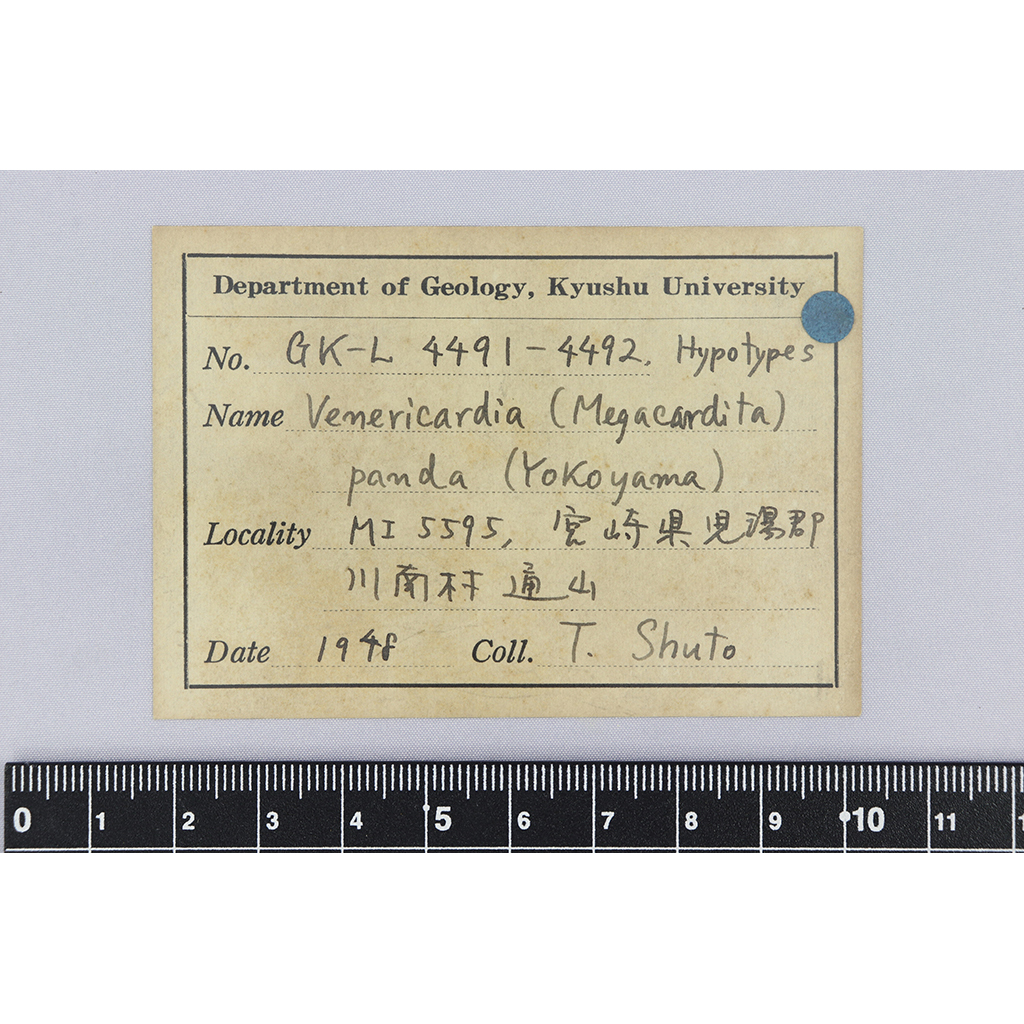 Department of Geology, Kyushu University
No. GK-L 4491-4492. Hypotypes
Name Venericardia (Megacardita)
panda (Yokoyama)
Locality MI 5595, 宮崎県児湯郡
川南村通山
Date 1948 Coll. T. Shuto
0 1 2 3 4 5 6 7 8 9 10 11